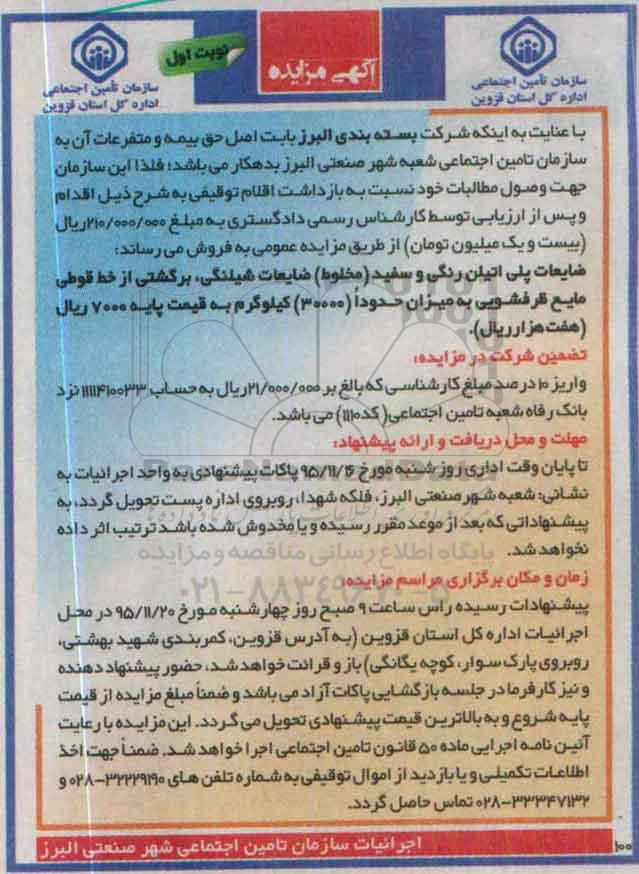 آگهی مزایده
نوبت اول
سازمان تأمین اجتماعی
اداره کل استان قزوین
سازمان تأمین اجتماعی
اداره کل استان قزوین
با عنایت به اینکه شرکت بسته بندی البرز بابت اصل حق بیمه و متفرعات آن به
سازمان تامین اجتماعی شعبه شهر صنعتی البرز بدهکار می باشد؛ فلذا این سازمان
جهت وصول مطالبات خود نسبت به بازداشت اقلام توقیفی به شرح ذیل اقدام
و پس از ارزیابی توسط کارشناس رسمی دادگستری به مبلغ ۲۱۰/۰۰۰/۰۰۰ریال
(بیست و یک میلیون تومان) از طریق مزایده عمومی به فروش می رساند:
ضایعات پلی اتیلن رنگی و سفید (مخلوط) ضایعات شیلنگی، برگشتی از خط قوطی
مایع ظرفشویی به میزان حدوداً (۳۰۰۰۰) کیلوگرم به قیمت پایه ۷۰۰۰ ریال
(هفت هزار ریال).
تضمین شرکت در مزایده:
واریز ۱۰ درصد مبلغ کارشناسی که بالغ بر ۲۱/۰۰۰/۰۰۰ریال به حساب ۱۱۱۱۴۱۰۰۳۳ نزد
بانک رفاه شعبه تامین اجتماعی( کد۱۱۱۰) می باشد.
مهلت و محل دریافت و ارائه پیشنهاد:
تا پایان وقت اداری روز شنبه مورخ ۹۵/۱۱/۱۶ پاکات پیشنهادی به واحد اجرائیات به
نشانی: شعبه شهر صنعتی البرز، فلکه شهدا، روبروی اداره پست تحویل گردد، به
پیشنهاداتی که بعد از موعد مقرر رسیده و یا مخدوش شده باشد ترتیب اثر داده
نخواهد شد.
پایگاه اطلاع رسانی مناقصه و مزایده
زمان و مکان برگزاری مراسم مزایده:
۰۲۱-۸۸۳۴۹۶۷۰-۵
پیشنهادات رسیده راس ساعت ۹ صبح روز چهارشنبه مورخ ۹۵/۱۱/۲۰ در محل
اجرائیات اداره کل استان قزوین (به آدرس قزوین، کمربندی شهید بهشتی،
روبروی پارک سوار، کوچه یگانگی) باز و قرائت خواهد شد، حضور پیشنهاد دهنده
و نیز کارفرما در جلسه بازگشایی پاکات آزاد می باشد و ضمناً مبلغ مزایده از قیمت
پایه شروع و به بالاترین قیمت پیشنهادی تحویل می گردد. این مزایده با رعایت
آئین نامه اجرایی ماده ۵۰ قانون تامین اجتماعی اجرا خواهد شد. ضمناً جهت اخذ
اطلاعات تکمیلی و یا بازدید از اموال توقیفی به شماره تلفن های ۳۲۲۲۹۱۹۰-۰۲۸ و
۳۳۳۴۷۱۳۲-۰۲۸ تماس حاصل گردد.
اجرائیات سازمان تامین اجتماعی شهر صنعتی البرز
۱۰۰